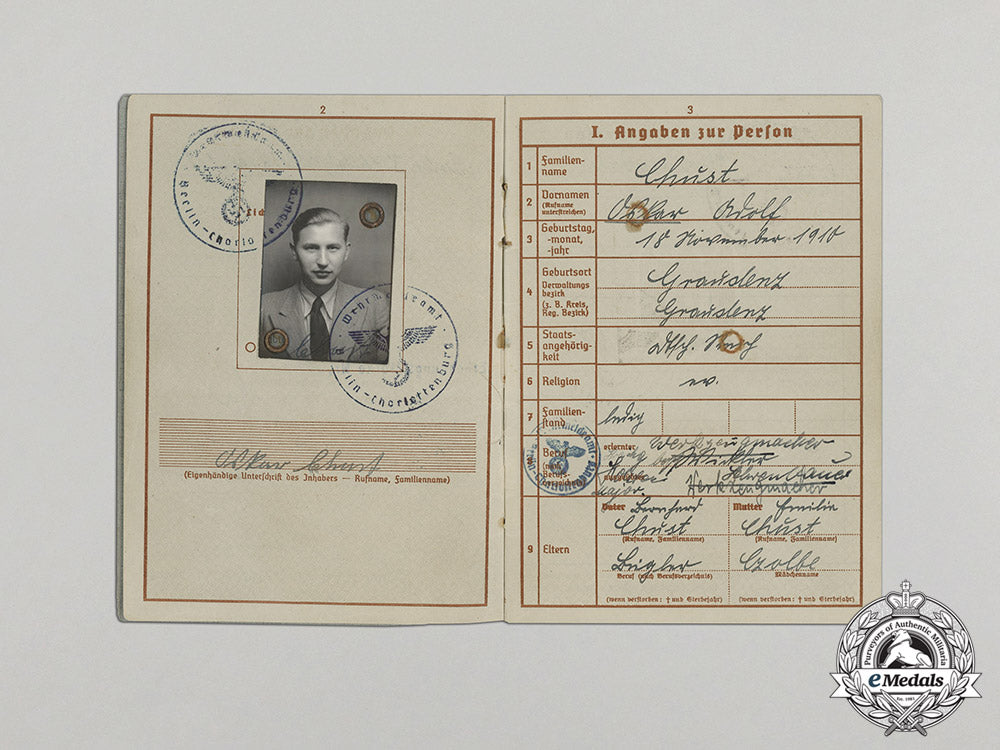 2
Wehrmeldeamt
Berlin-Charlottenburg
Lich
Wehrmeldeamt
Berlin-Charlottenburg
Oskar Chust
(Eigenhändige Unterschrift des Inhabers — Rufname, Familienname)
3
I. Angaben zur Person
1 Familienname Chust
2 Vornamen (Rufname unterstreichen) Oskar Adolf
3 Geburtstag, -monat, -jahr 18 November 1910
4 Geburtsort Graudenz
Verwaltungsbezirk (z. B. Kreis, Reg. Bezirk) Graudenz
5 Staatsangehörigkeit Dtsch.
6 Religion ev.
7 Familienstand ledig
Beruf (nach Berufsverzeichnis)
erlernter Werkzeugmacher
Wickler
Werkzeugmacher
9 Eltern
Vater Bernhard
Chust
(Rufname, Familienname)
Mutter Emilie
Chust
(Rufname, Familienname)
Beruf (nach Berufsverzeichnis)
Golbe
Mädchenname
(wenn verstorben: † und Sterbejahr)
(wenn verstorben: † und Sterbejahr)
Purveyors of Authentic Militaria
eMedals